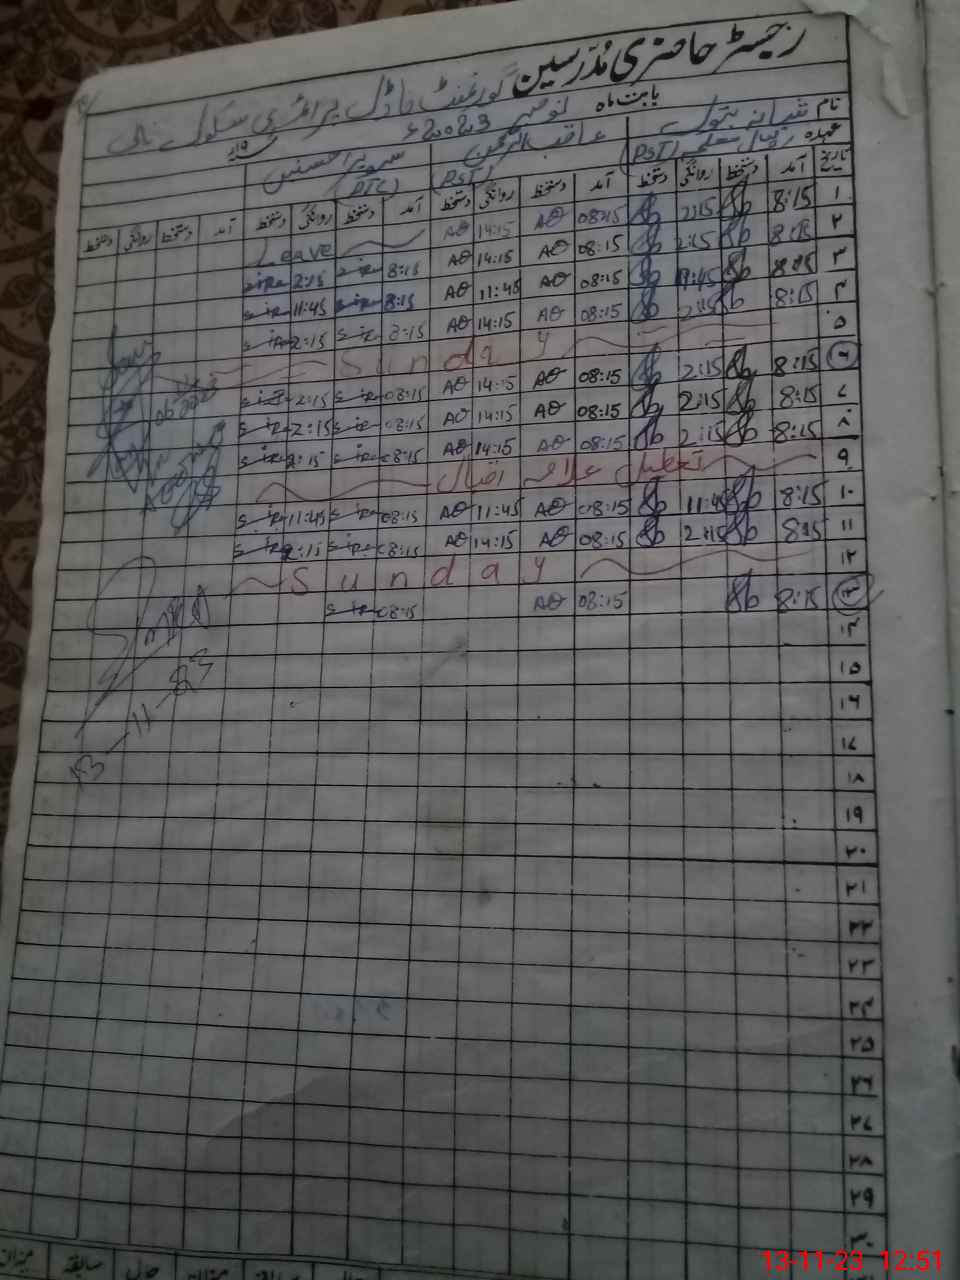 رجسٹر حاضری مُدرسین گورنمنٹ ماڈل پرائمری سکول
بابت ماہ نومبر 2023ء
نام شبانہ بتول عاقب الرحمن
عہدہ (PST) (PST) (PTC)
تاریخ آمد دستخط روانگی دستخط آمد دستخط روانگی دستخط آمد دستخط روانگی دستخط آمد دستخط روانگی دستخط
۱ 8:15 2:15 08:15 AO 14:15 AO Leave
۲ 8:15 2:15 08:15 AO 14:15 AO 8:15 2:15
۳ 8:15 11:45 08:15 AO 11:45 AO 8:15 11:45
۴ 8:15 2:15 08:15 AO 14:15 AO 8:15 2:15
۵ Sunday
۶ 8:15 2:15 08:15 AO 14:15 AO 08:15 2:15
۷ 8:15 2:15 08:15 AO 14:15 AO 08:15 2:15
۸ 8:15 2:15 08:15 AO 14:15 AO 08:15 2:15
۹ تعطیل علامہ اقبال
۱۰ 8:15 11:45 08:15 AO 11:45 AO 08:15 11:45
۱۱ 8:15 2:15 08:15 AO 14:15 AO 08:15 2:15
۱۲ Sunday
۱۳ 8:15 08:15 AO 08:15
۱۴
۱۵
۱۶
۱۷
۱۸
۱۹
۲۰
۲۱
۲۲
۲۳
۲۴
۲۵
۲۶
۲۷
۲۸
۲۹
۳۰
13-11-23
سابقہ میزان
13-11-23 12:51